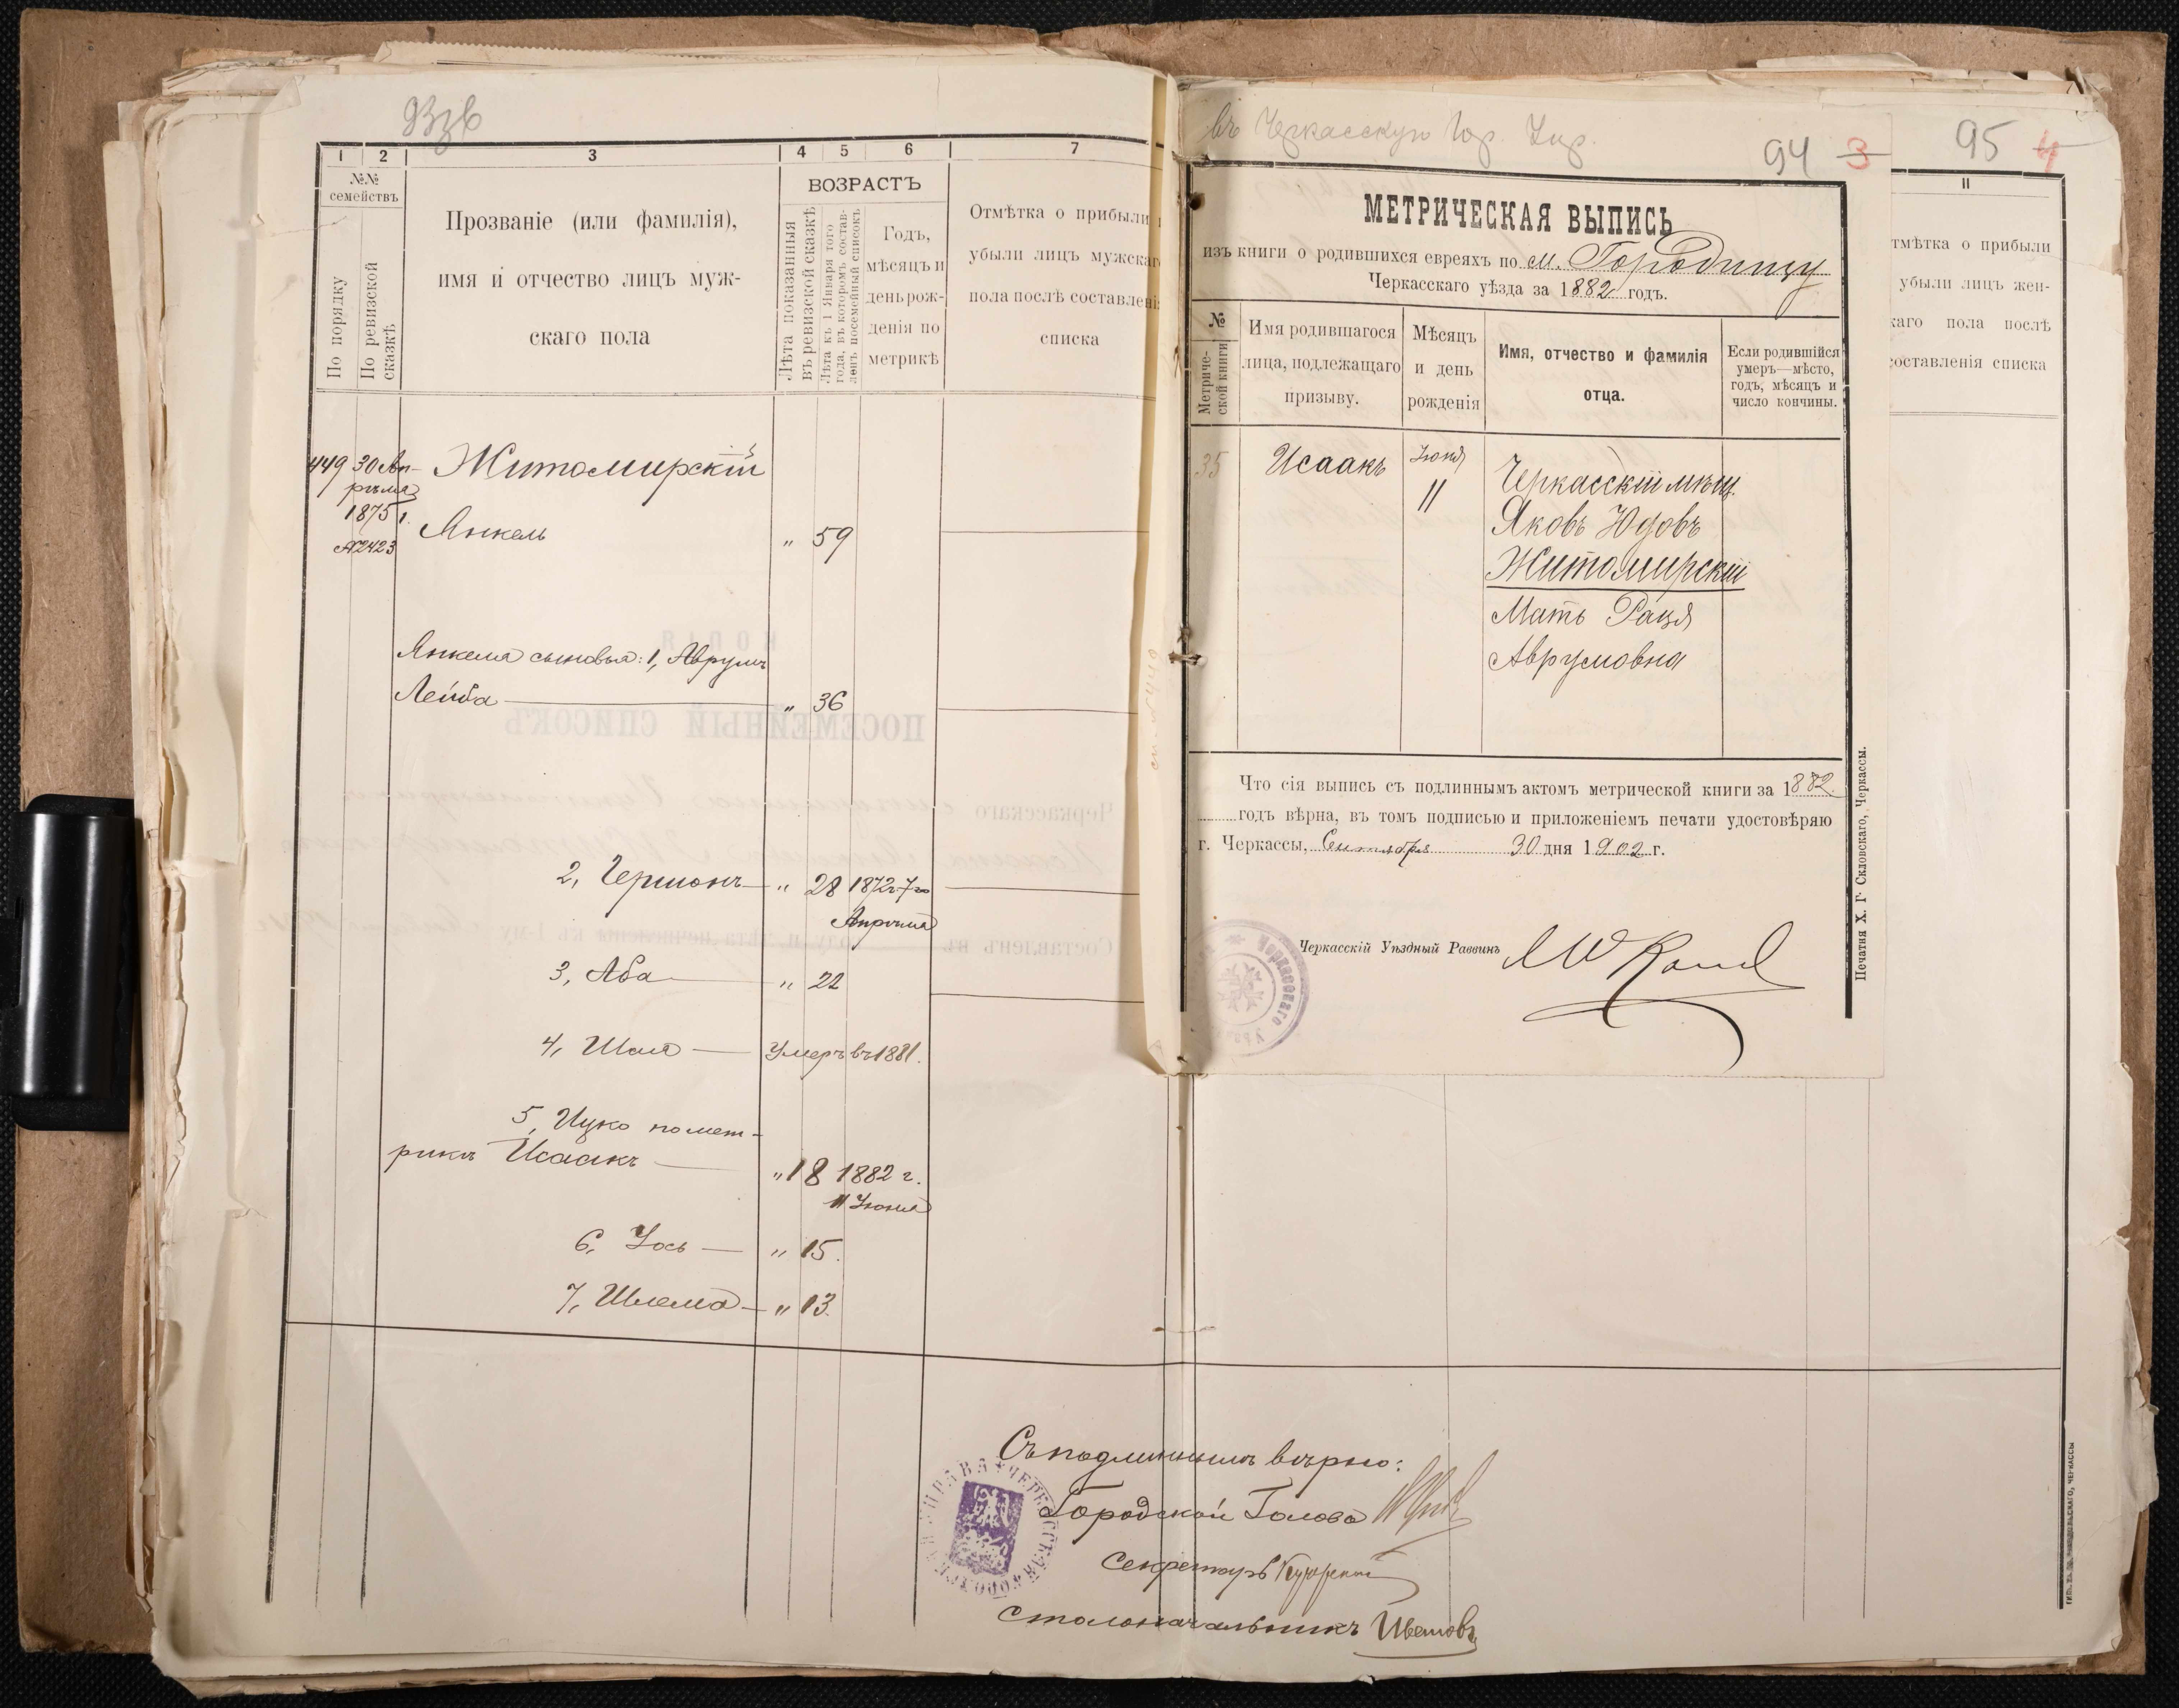 1 2 3 4 5 6 7
№№ семействъ
По порядку
По ревизской сказкѣ
Прозваніе (или фамилія),
имя и отчество лицъ муж-
скаго пола
ВОЗРАСТЪ
Лѣта показанныя
въ ревизской сказкѣ
Лѣта къ 1 Января того
года, въ которомъ состав-
ленъ посемейный списокъ
Годъ,
мѣсяцъ и
день рож-
денія по
метрикѣ
Отмѣтка о прибыли
убыли лицъ мужскаг
пола послѣ составлені
списка
449 30 Ап- Житомирскій
рѣля
1875 г.
№2423
Янкель „ 59
Янкеля сыновья: 1, Аврумъ
Лейба „ 36
2, Гершонъ „ 28 1872 г. 7го
Апрѣля
3, Аба „ 22
4, Шая Умеръ въ 1881.
5, Ицко по мет-
рикѣ Исаакъ „ 18 1882 г.
11 Іюня
6, Іось „ 15.
7, Шлема „ 13.
Съ подлиннымъ вѣрно:
Городской Голова
Секретарь
Столоначальникъ
въ Черкасскую Гор. Упр.
94 3
МЕТРИЧЕСКАЯ ВЫПИСЬ
изъ книги о родившихся евреяхъ по м. Городищу
Черкасскаго уѣзда за 1882 годъ.
№
Метриче-
ской книги
Имя родившагося
лица, подлежащаго
призыву.
Мѣсяцъ
и день
рожденія
Имя, отчество и фамилія
отца.
Если родившійся
умеръ—мѣсто,
годъ, мѣсяцъ и
число кончины.
35 Исаакъ Іюня
11
Черкасскій мѣщ.
Яковъ Юдовъ
Житомирскій
Мать Рация
Аврумовна
Что сія выпись съ подлиннымъ актомъ метрической книги за 1882
годъ вѣрна, въ томъ подписью и приложеніемъ печати удостовѣряю
г. Черкассы, Сентября 30 дня 1902 г.
Черкасскій Уѣздный Раввинъ
Печатня Х. Г. Скловскаго, Черкассы.
95 4
11
тмѣтка о прибыли
убыли лицъ жен-
каго пола послѣ
составленія списка